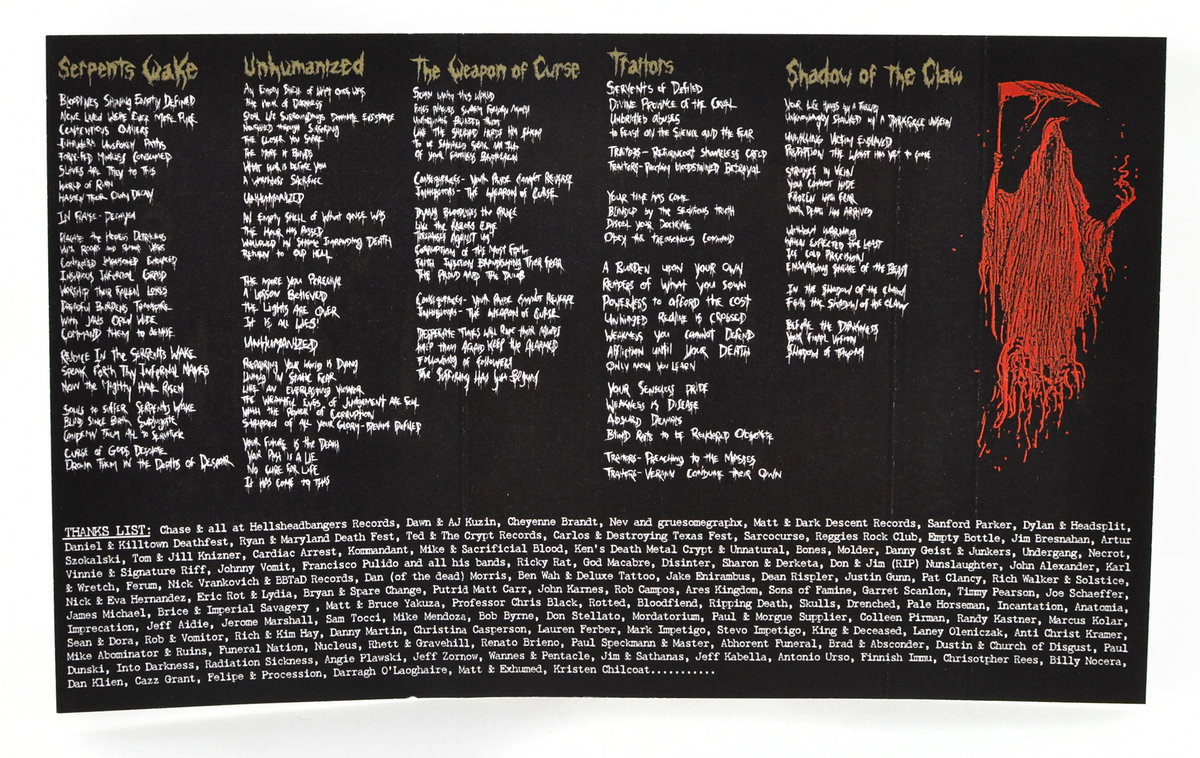 Serpents Wake
Bloodlines Shining Empty Defined
None Lived Were Ever More Pure
Contentious Others
Slaves Are They to This
World of Ruin
Hasten Their Own Decay
In Praise - Decayed
Worship Their Fallen Lords
With Jaws Open Wide
Command Them to Demise
Rejoice In the Serpents Wake
Speak Forth Thy Infernal Names
Now the Mighty Have Risen
Souls to Suffer Serpents Wake
Blind Since Birth, Subjugate
Condemn Them All to Servitude
Curse of Gods Desolate
Drown Them In the Depths of Despair
Unhumanized
An Empty Shell of What Once Was
The Hour of Darkness
Nourished Through Suffering
The Closer You Stare
The More It Blinds
What Lies Before You
Unhumanized
An Empty Shell of What Once Was
The Hour Has Passed
Return to Our Hell
The More You Perceive
A Lesson Believed
The Lights Are Over
It Is All Lies!
Unhumanized
Repairing Your Mind Is Dying
Living In Stark Fear
Like An Everlasting Vision
The Wrathful Eyes of Judgement Are Full
With the Power of Corruption
Stripped of All Your Glory - Devine Defiled
Your Future Is the Dead
Your Past Is A Lie
No Cure For Life
It Has Come to This
The Weapon of Curse
Spawn Unto This World
Like The Shepherd Herds His Sheep
Consequences - Your Pride Cannot Release
Inhibitions - The Weapon of Curse
Dying Bloodless In Grace
Like The Razors Edge
Trespassed Against Us
Corruption of The Most Foul
The Proud And The Dumb
Consequences - Your Pride Cannot Release
Inhibitions - The Weapon of Curse
Desperate Times Will Rape Their Minds
Keep Them Afraid Keep Em Alarmed
Following of Followers
The Suffering Has Now Begun
Traitors
Servents of Defiled
Divine Province of the Cruel
Unbridled Abuses
to Feast on the Silence and the Fear
Traitors - Returncoat Shameless Creed
Traitors - Proclaim Bloodstained Betrayal
Your Time Has Come
Blinded by the Seditious Truth
Dispell Your Doctrine
Obey the Treasonous Command
A Burden Upon Your Own
Reapers of What You Sown
Powerless to Afford the Cost
Unhinged Realine is Crossed
Weakness You Cannot Defend
Affliction Until Your Death
Only Now You Learn
Your Senseless Pride
Weakness is Disease
Absurd Demands
Blind Rats to be Rendered Obsolete
Traitors - Preaching to the Masses
Traitors - Vermin Consume Their Own
Shadow of The Claw
Your Life Hangs By a Thread
Unknowingly Stalked By a Darkforce Unseen
Unwilling Victim Enslaved
Premonition The Worst Has Yet to Come
Struggle In Vein
You Cannot Hide
Frozen With Fear
Your Death Has Arrived
Without Warning
When Expected The Least
Ice Cold Precision
Ensnaring Shrine of the Beast
In the Shadow of the Claw
Fear the Shadow of the Claw
Before the Darkness
Your Final Vision
Shadow of Talons
THANKS LIST: Chase & all at Hellsheadbangers Records, Dawn & AJ Kuzin, Cheyenne Brandt, Nev and gruesomegraphx, Matt & Dark Descent Records, Sanford Parker, Dylan & Headsplit,
Daniel & Killtown Deathfest, Ryan & Maryland Death Fest, Ted & The Crypt Records, Carlos & Destroying Texas Fest, Sarcocurse, Reggies Rock Club, Empty Bottle, Jim Bresnahan, Artur
Szokalski, Tom & Jill Knizner, Cardiac Arrest, Kommandant, Mike & Sacrificial Blood, Ken's Death Metal Crypt & Unnatural, Bones, Molder, Danny Geist & Junkers, Undergang, Necrot,
Vinnie & Signature Riff, Johnny Vomit, Francisco Pulido and all his bands, Ricky Rat, God Macabre, Disinter, Sharon & Derketa, Don & Jim (RIP) Nunslaughter, John Alexander, Karl
& Wretch, Ferum, Nick Vrankovich & BBTaD Records, Dan (of the dead) Morris, Ben Wah & Deluxe Tattoo, Jake Enirambus, Dean Rispler, Justin Gunn, Pat Clancy, Rich Walker & Solstice,
Nick & Eva Hernandez, Eric Rot & Lydia, Bryan & Spare Change, Putrid Matt Carr, John Karnes, Rob Campos, Ares Kingdom, Sons of Famine, Garret Scanlon, Timmy Pearson, Joe Schaeffer,
James Michael, Brice & Imperial Savagery , Matt & Bruce Yakuza, Professor Chris Black, Rotted, Bloodfiend, Ripping Death, Skulls, Drenched, Pale Horseman, Incantation, Anatomia,
Imprecation, Jeff Aidie, Jerome Marshall, Sam Tocci, Mike Mendoza, Bob Byrne, Don Stellato, Mordatorium, Paul & Morgue Supplier, Colleen Pirman, Randy Kastner, Marcus Kolar,
Sean & Dora, Rob & Vomitor, Rich & Kim Hay, Danny Martin, Christina Casperson, Lauren Ferber, Mark Impetigo, Stevo Impetigo, King & Deceased, Laney Oleniczak, Anti Christ Kramer,
Mike Abominator & Ruins, Funeral Nation, Nucleus, Rhett & Gravehill, Renato Brieno, Paul Speckmann & Master, Abhorent Funeral, Brad & Absconder, Dustin & Church of Disgust, Paul
Dunski, Into Darkness, Radiation Sickness, Angie Plawski, Jeff Zornow, Warnes & Pentacle, Jim & Sathanas, Jeff Kabella, Antonio Urso, Finnish Immu, Chrisotpher Rees, Billy Nocera,
Dan Klien, Cazz Grant, Felipe & Procession, Darragh O'Laoghaire, Matt & Exhumed, Kristen Chilcoat...........